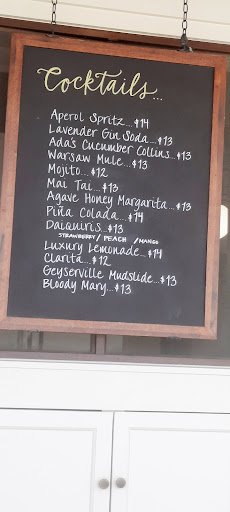 Cocktails...
Aperol Spritz...$14
Lavender Gin Soda...$13
Ada's Cucumber Collins...$13
Warsaw Mule...$13
Mojito...$12
Mai Tai...$13
Agave Honey Margarita...$13
Piña Colada...$14
Daiquiris...$13
STRAWBERRY / PEACH / MANGO
Luxury Lemonade...$14
Clarita...$12
Geyserville Mudslide...$13
Bloody Mary...$13